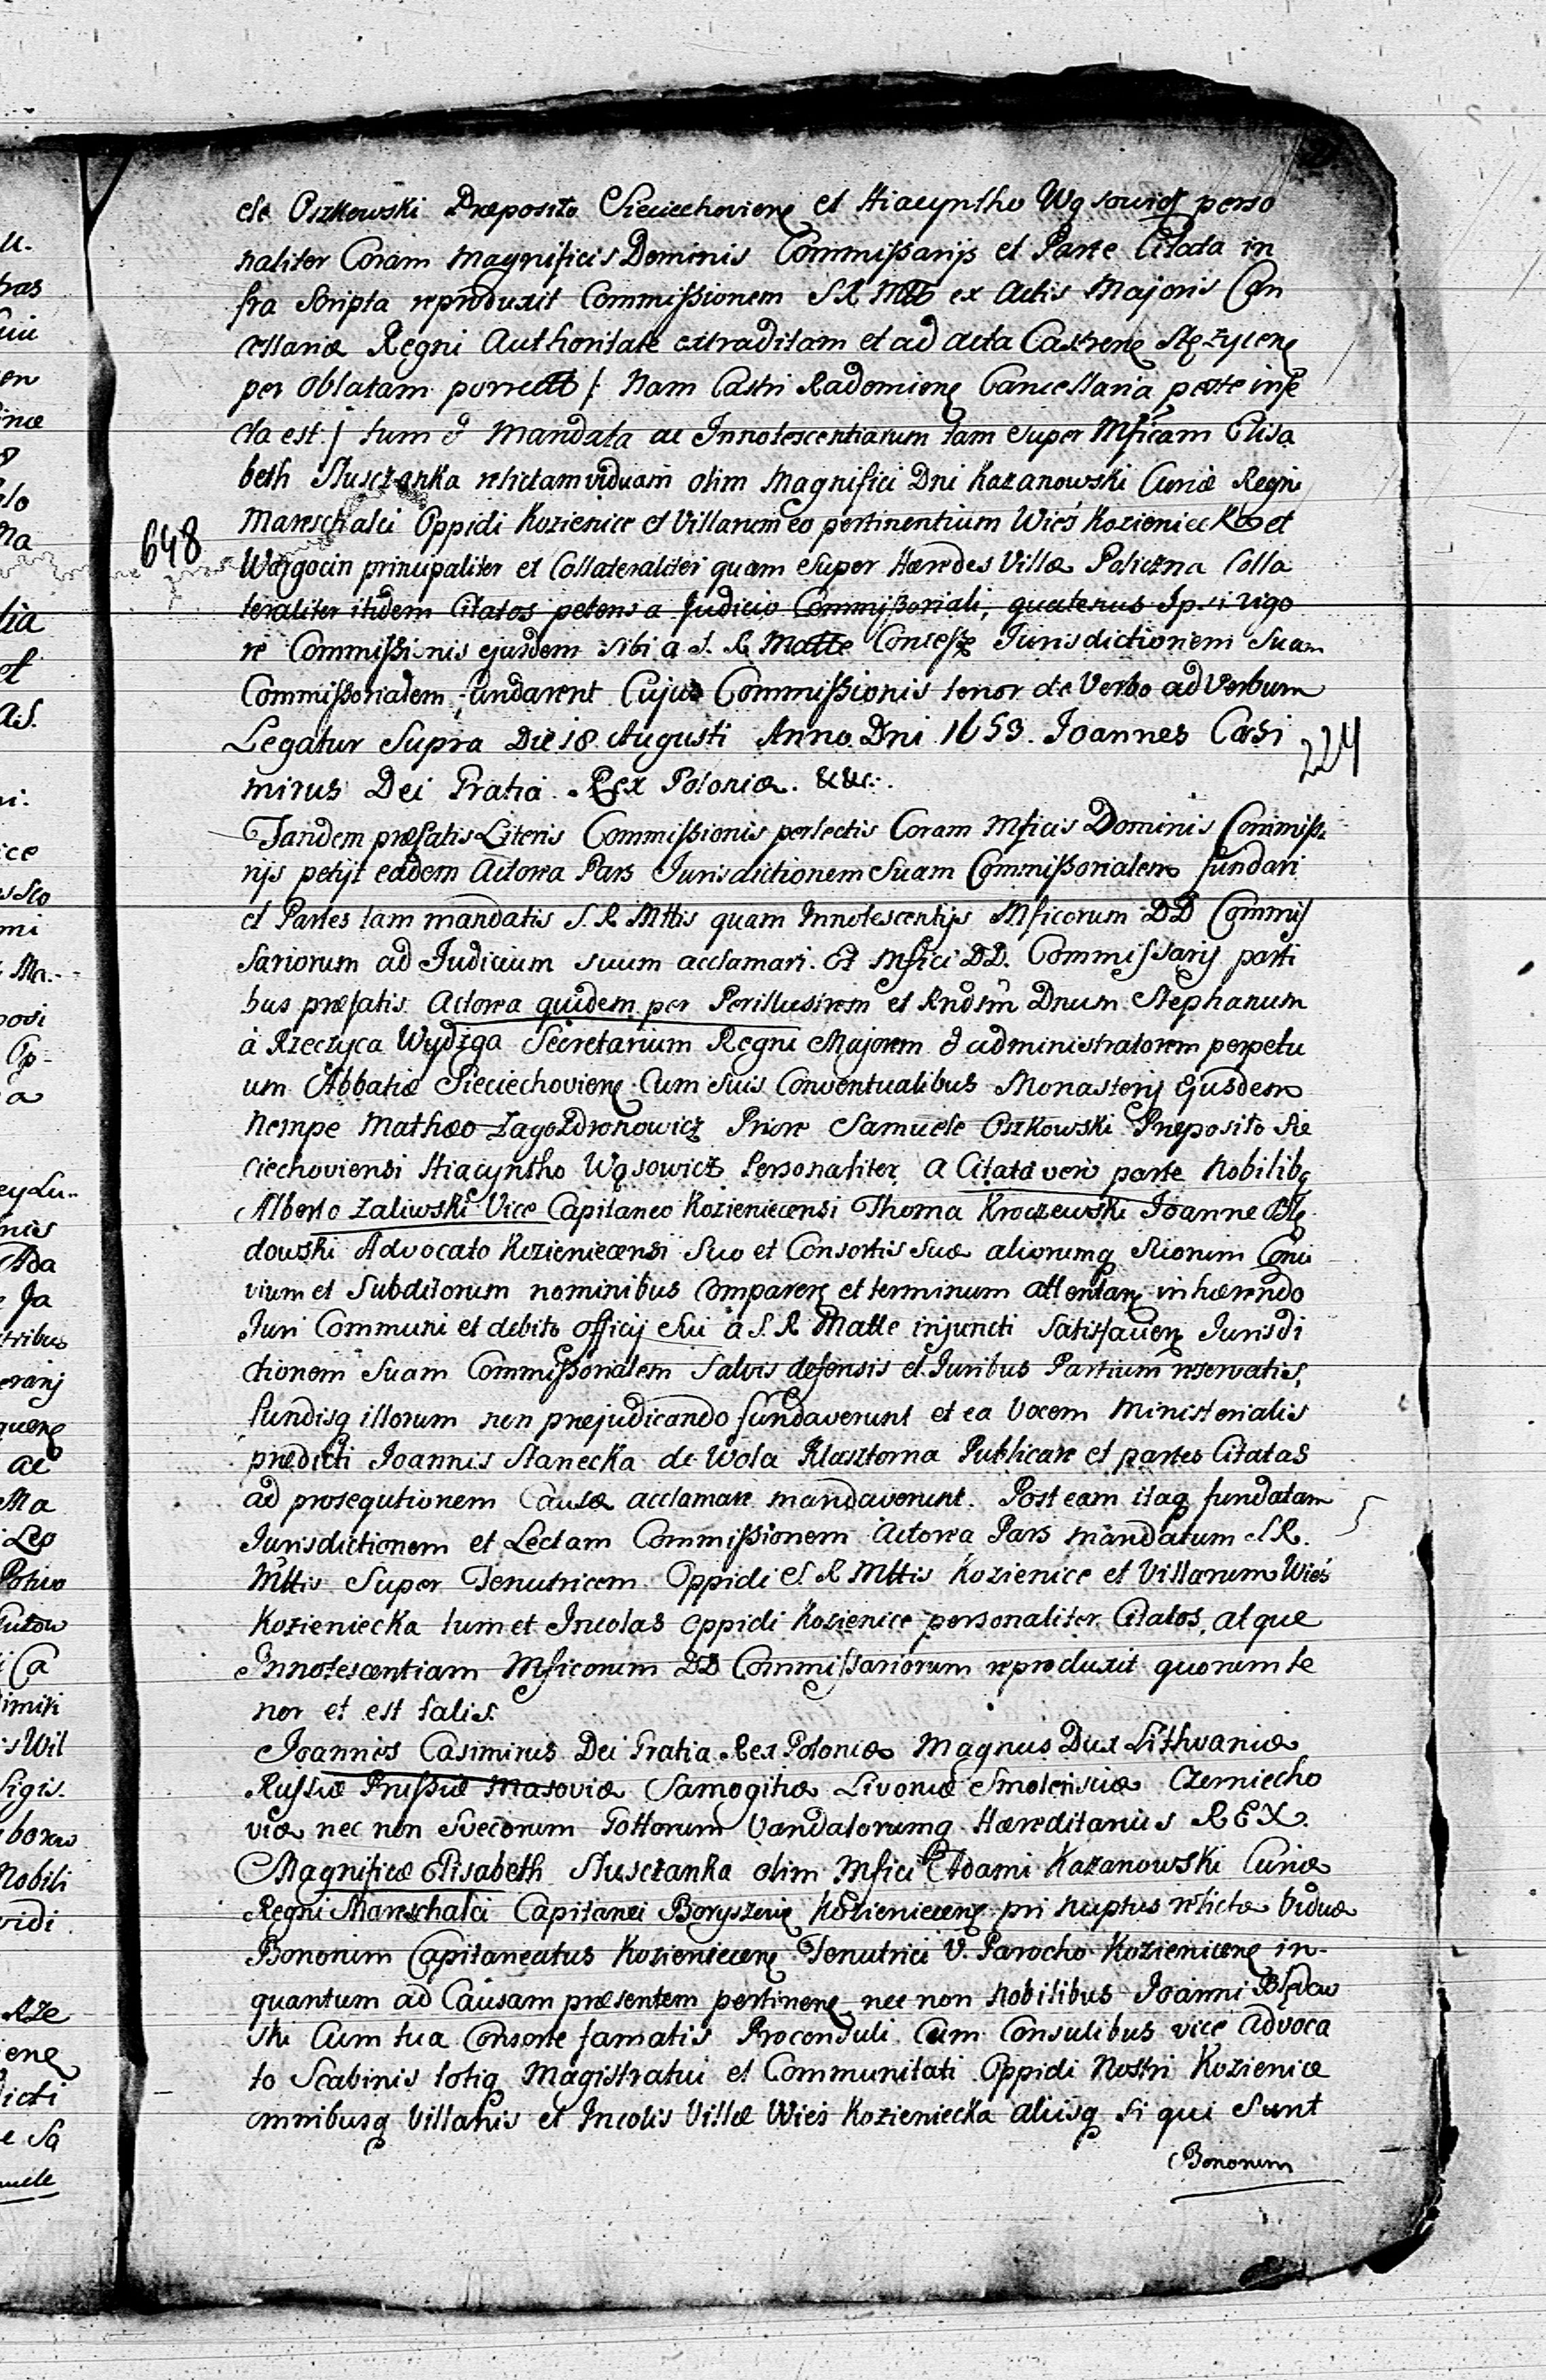 ele Oszkowski Præposito Sieciechoviene et Hiacyntho Wąsowicz perso
naliter Coram Magnificis Dominis Commißarijs et Parte Citata in
fra Scripta reproduxit Commißionem S R Mtt ex Actis Majoris Can
cellariæ Regni Authoritate extraditam et ad acta Castrenę Stężycenę
per Oblatam porrectt /: Nam Castri Radomienę Cancellaria peste infe
cta est :/ tum & Mandata ac Innotescentiarum tam super Mficam Elisa
beth Słusczanka relictam viduam olim Magnifici Dni Kazanowski Curiæ Regni
Mareschalci Oppidi Kozienice et Villarum eo pertinentium Wieś Kozieniecka et
648
Wargocin principaliter et Collateraliter quam super Hæredes Villæ Policzna Colla
teraliter itidem Citatos petens a Judicio Commißoriali, quatenus Ipsi vigo
re Commißionis ejusdem sibi a S. R. Matte Concessę Jurisdictionem Suam
Commißorialem fundarent Cujus Commißionis tenor de Verbo ad Verbum
Legatur Supra Die 18 Augusti Anno Dni 1653. Joannes Casi
224
mirus Dei Gratia Rex Poloniæ. &&c:.
Tandem præfatis Literis Commißionis perlectis Coram Mficis Dominis Commißa
rijs petijt eadem Actorea Pars Jurisdictionem Suam Commißorialem fundari
et Partes tam mandatis S. R Mttis quam Innotescentijs Mficorum DD Commis
sariorum ad Judicium suum acclamari. Et Mfici DD. Commissarij parti
bus præfatis Actorea quidem per Perillustrem et Rndsm̃ Dnum Stephanum
à Rzeczyca Wydzga Secretarium Regni Majorem & administratorem perpetu
um Abbatiæ Sieciechovienę Cum suis Conventualibus Monasterij Ejusdem
Nempe Mathæo Zagozdronowicz Priore Samuele Oszkowski Præposito Sie
ciechoviensi Hiacyntho Wąsowicz Personaliter, a Citata verò parte Nobilibq
Alberto Zaliwski Vice Capitaneo Kozieniecensi Thoma Kroczewski Joanne Błę
dowski Advocato Kozieniecensi Suo et Consortis Suæ aliorumq Suorum Conci
vium et Subditorum nominibus Comparenę et terminum attentanę inhærendo
Juri Communi et debito officij Sui à S. R Matte injuncti Satisfacienę Jurisdi
ctionem Suam Commißorialem Salvis defensis et Juribus Partium reservatis,
fundisq illorum non præjudicando fundaverunt et ea Vocem Ministerialis
prædicti Joannis Stanecka de Wola Klasztorna Publicare et partes Citatas
ad prosequtionem Causæ acclamare mandaverunt. Post eam itaq fundatam
Jurisdictionem et Lectam Commißionem Actorea Pars Mandatum S R.
Mttis Super Tenutricem Oppidi S. R Mttis Kozienice et Villarum Wieś
Kozieniecka tum et Incolas Oppidi Kozienice personaliter Citatos, atque
Innotescentiam Mficorum DD Commissariorum reproduxit quorum te
nor et est talis.
Joannes Casimirus Dei Gratia Rex Poloniæ Magnus Dux Lithvaniæ
Russiæ Prußiæ Masoviæ Samogitiæ Livoniæ Smolensciæ Czerniecho
viæ nec non Svecorum Gottorum Vandalorumq Hæreditarius REX.
Magnificæ Elisabeth Słusczanka olim Mfici Adami Kazanowski Curiæ
Regni Mareschalci Capitanei Boryszenę Kozieniecenę pri nuptus relictæ Viduæ
Bonorum Capitaneatus Kozieniecenę Tenutrici V. Parocho Kozienicenę in-
quantum ad Causam præsentem pertinenę nec non Nobilibus Joanni Błędow
ski Cum sua Consorte famatis Proconsuli Cum Consulibus vice advoca
to Scabinis totiq Magistratui et Communitati Oppidi Nostri Kozienice
omnibusq Villanis et Incolis Villæ Wieś Kozieniecka alijsq si qui Sunt
Bonorum